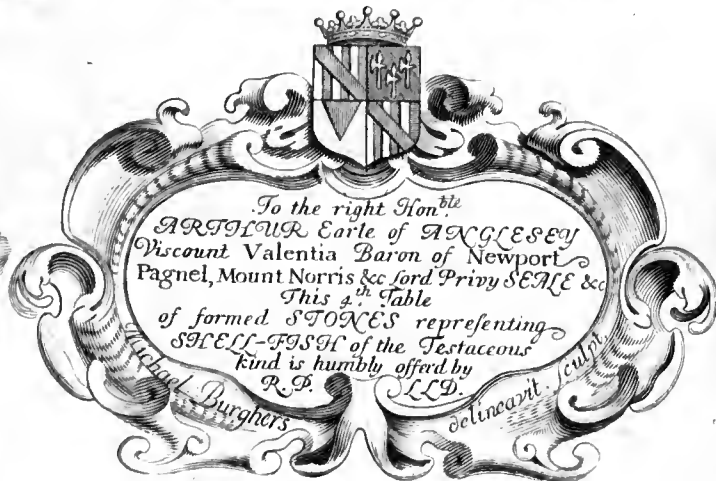 To the right Hon.ble
ARTHUR Earle of ANGLESEY
Viscount Valentia Baron of Newport
Pagnel, Mount Norris &c Lord Privy SEALE &c
This 4.th Table
of formed STONES representing
SHELL-FISH of the Testaceous
kind is humbly offerd by
R.P. LLD.
Michael Burghers delineavit. sculpt.